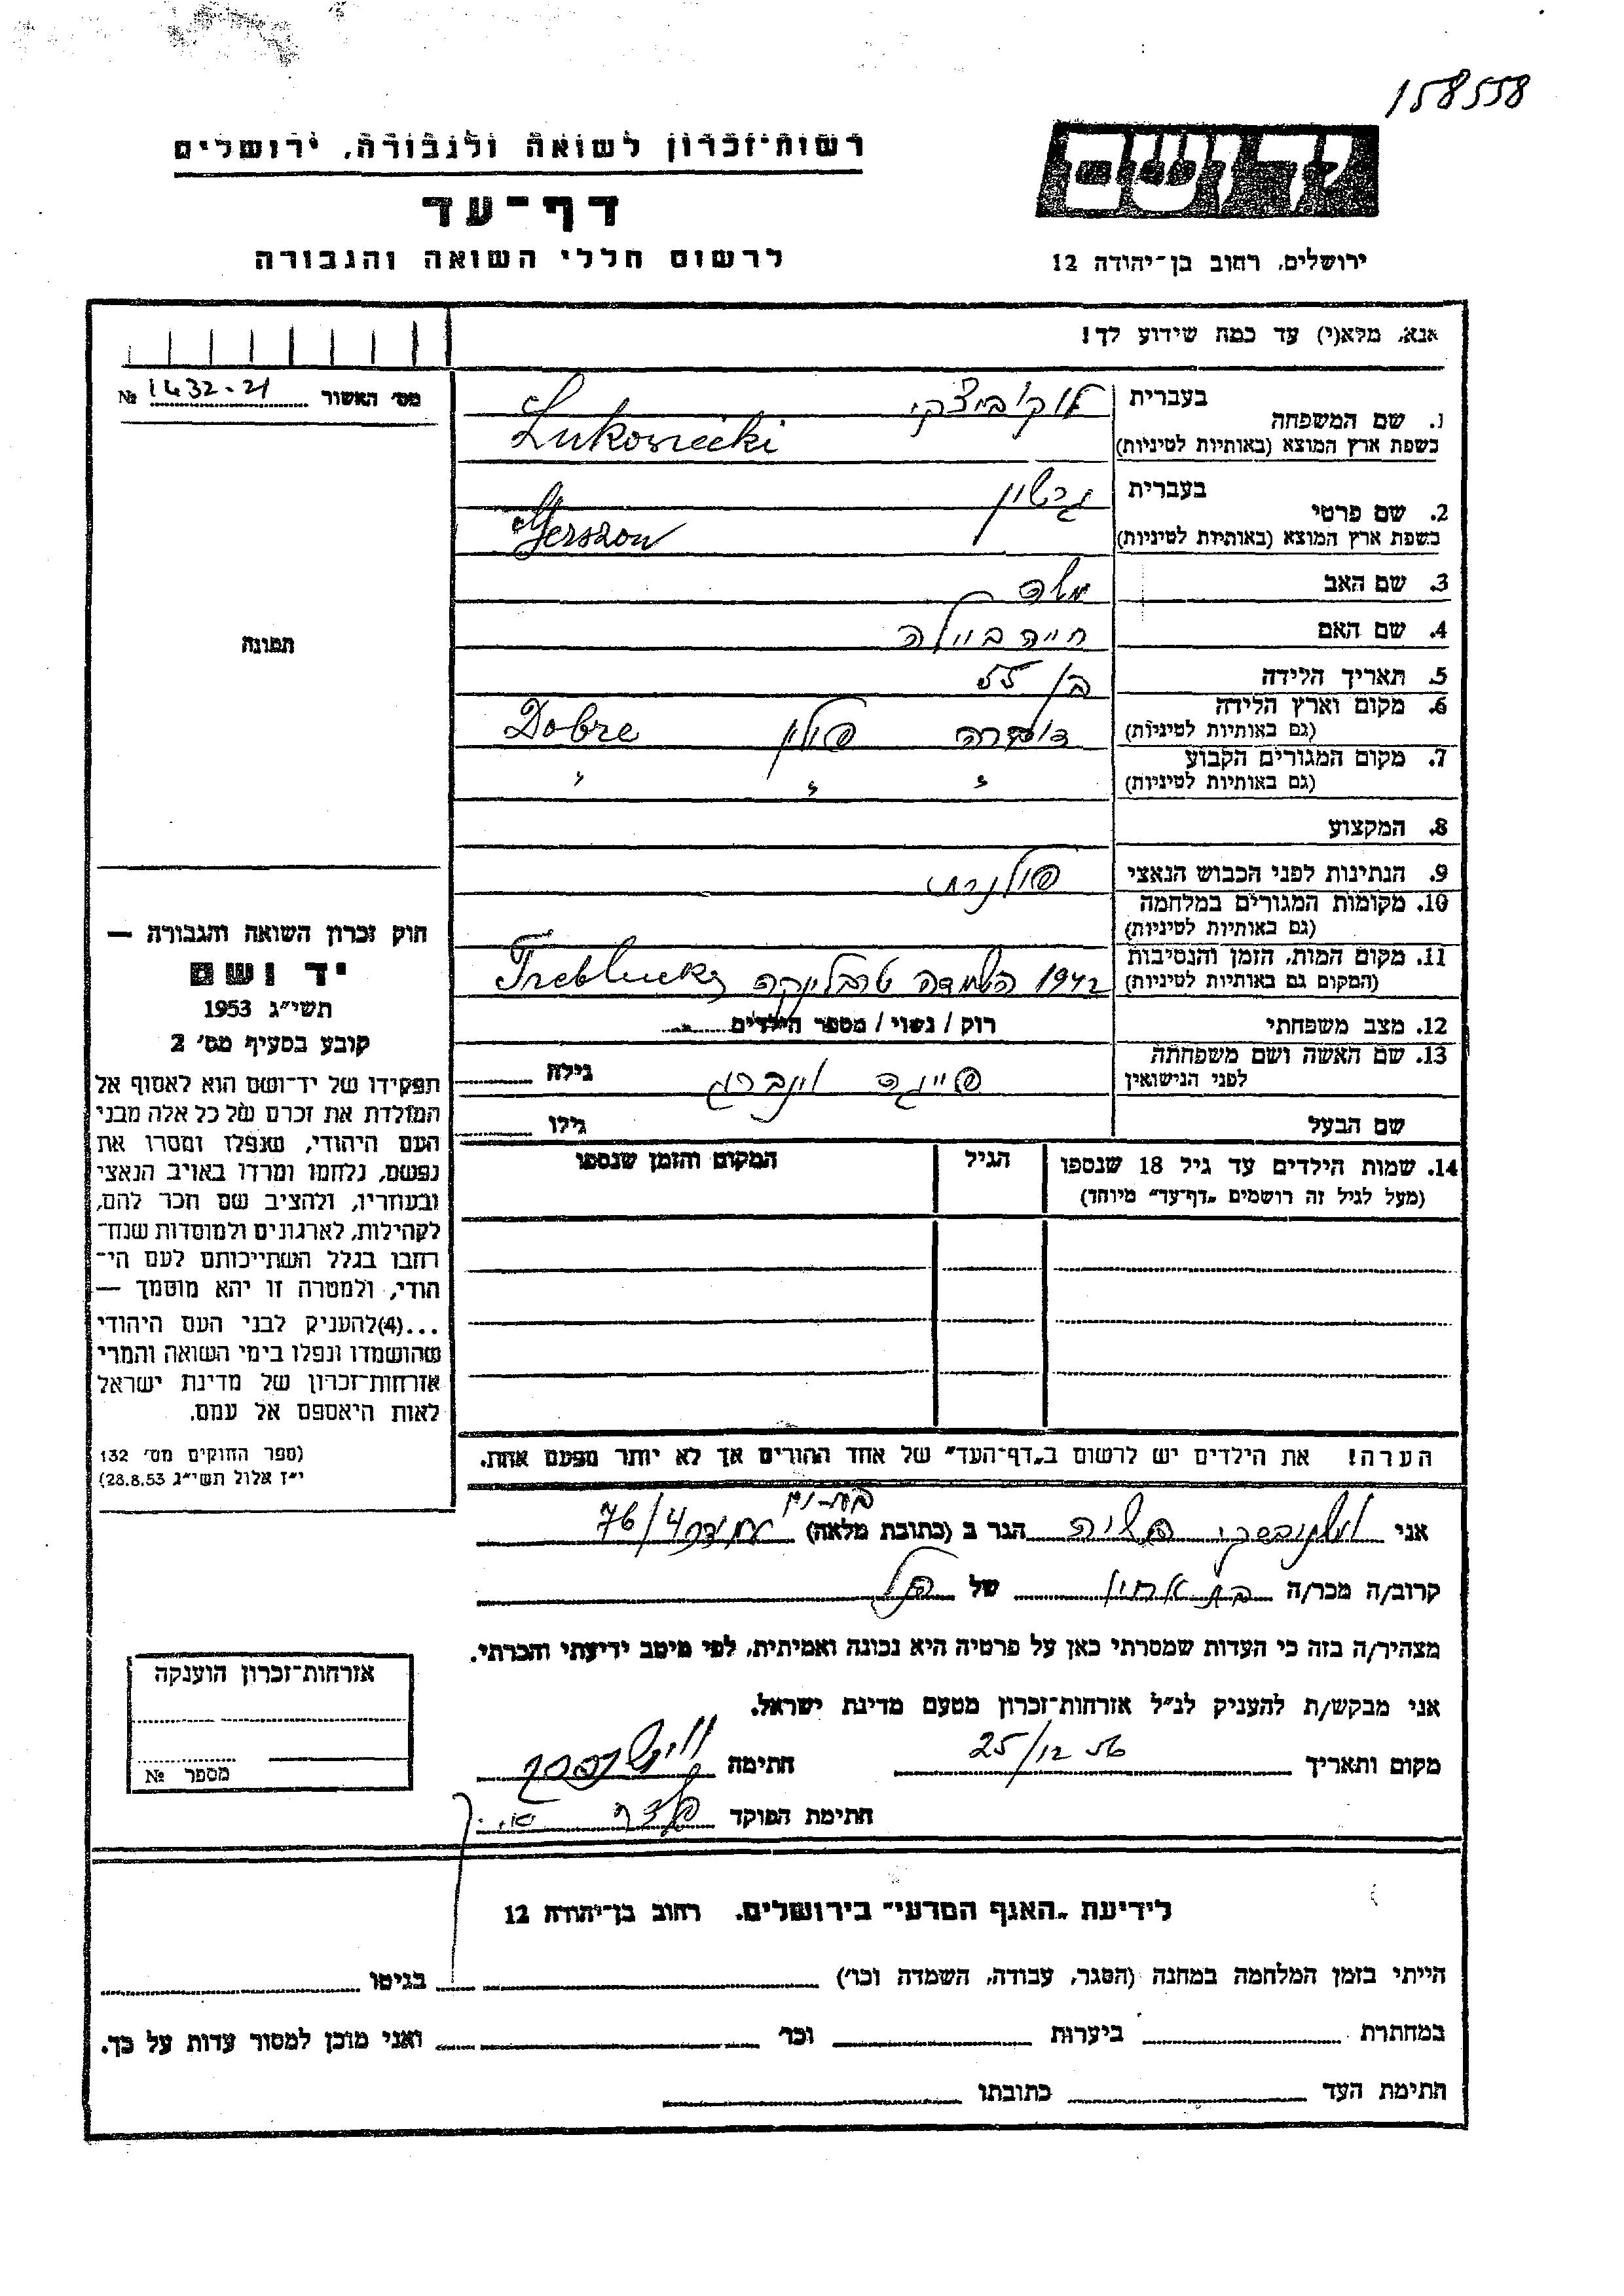 158558
רשות-זכרון לשואה ולגבורה, ירושלים
דף-עד
לרשום חללי השואה והגבורה
יד ושם
ירושלים, רחוב בן-יהודה 12
אנא, מלא(י) עד כמה שידוע לך!
מס' האשור 1432-21 №
1. שם המשפחה
בעברית לוקוביצקי
בשפת ארץ המוצא (באותיות לטיניות) Lukowiecki
2. שם פרטי
בעברית גרשון
בשפת ארץ המוצא (באותיות לטיניות) Gerszon
3. שם האב משה
4. שם האם חייה ביילה
5. תאריך הלידה בן 55
6. מקום וארץ הלידה
(גם באותיות לטיניות) דוברה פולין Dobre
7. מקום המגורים הקבוע
(גם באותיות לטיניות) " " " "
8. המקצוע
9. הנתינות לפני הכבוש הנאצי פולנית
10. מקומות המגורים במלחמה
(גם באותיות לטיניות)
11. מקום המות, הזמן והנסיבות
(המקום גם באותיות לטיניות) 1942 השמדה טרבלינקה
12. מצב משפחתי רוק / נשוי / מספר הילדים
13. שם האשה ושם משפחתה
לפני הנישואין פייגה וינברג גילה
שם הבעל גילו
14. שמות הילדים עד גיל 18 שנספו הגיל המקום והזמן שנספו
(מעל לגיל זה רושמים „דף-עד" מיוחד)
הערה! את הילדים יש לרשום ב„דף-העד" של אחד ההורים אך לא יותר מפעם אחת.
תמונה
חוק זכרון השואה והגבורה —
יד ושם
תשי"ג 1953
קובע בסעיף מס' 2
תפקידו של יד-ושם הוא לאסוף אל
המולדת את זכרם של כל אלה מבני
העם היהודי, שנפלו ומסרו את
נפשם, נלחמו ומרדו באויב הנאצי
ובעוזריו, ולהציב שם וזכר להם,
לקהילות, לארגונים ולמוסדות שנח-
רבו בגלל השתייכותם לעם הי-
הודי, ולמטרה זו יהא מוסמך —
...(4)להעניק לבני העם היהודי
שהושמדו ונפלו בימי השואה והמרי
אזרחות-זכרון של מדינת ישראל
לאות היאספם אל עמם.
(ספר החוקים מס' 132
י"ז אלול תשי"ג 28.8.53)
בת-ים
אני הגר ב (כתובת מלאה) 76/4
קרוב/ה מכר/ה בת אחין של הנ"ל
מצהיר/ה בזה כי העדות שמסרתי כאן על פרטיה היא נכונה ואמיתית, לפי מיטב ידיעתי והכרתי.
אני מבקש/ת להעניק לנ"ל אזרחות-זכרון מטעם מדינת ישראל.
מקום ותאריך 25/12 56 חתימה
חתימת הפוקד
אזרחות-זכרון הוענקה
מספר №
לידיעת „האגף המדעי" בירושלים. רחוב בן-יהודה 12
הייתי בזמן המלחמה במחנה (הסגר, עבודה, השמדה וכו') בגיטו
במחתרת ביערות וכו' ואני מוכן למסור עדות על כך.
חתימת העד כתובתו